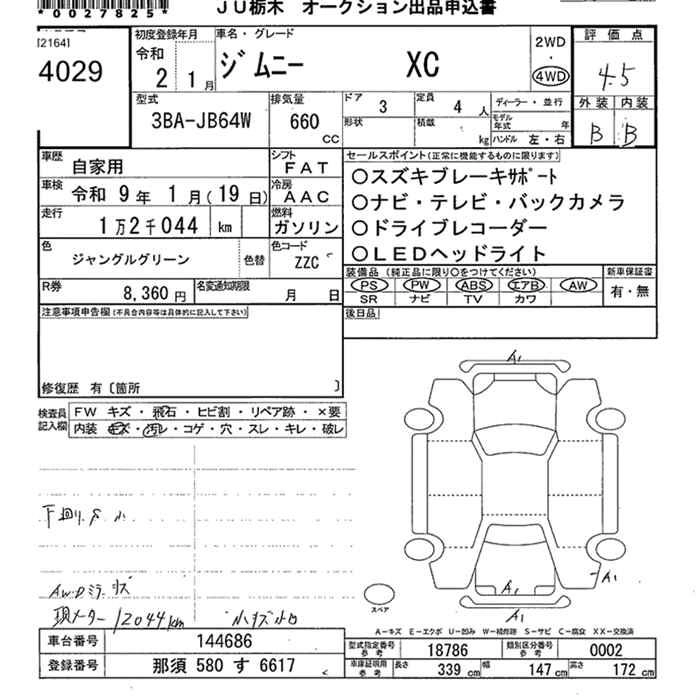 *0027825*
JU栃木 オークション出品申込書
[2164]
4029
初度登録年月
令和
2 1月
車名・グレード
ジムニー XC
2WD
・
4WD
評価点
4.5
外装 内装
B B
型式
3BA-JB64W
排気量
660
CC
ドア 3
定員 4人
形状
積載 kg
ディーラー・並行
モデル年式 年
ハンドル 左・右
車歴
自家用
シフト
FAT
車検 令和 9年 1月(19日)
冷房
AAC
走行
1万2千044 km
燃料
ガソリン
色
ジャングルグリーン
色替
色コード
ZZC
R券
8,360円
名変通知期限
月 日
セールスポイント(正常に機能するものに限ります)
○スズキブレーキサポート
○ナビ・テレビ・バックカメラ
○ドライブレコーダー
○LEDヘッドライト
装備品(純正品に限り○をつけてください)
PS PW ABS エアB AW
SR ナビ TV カワ
新車保証書
有・無
後日品
注意事項申告欄(不具合内容等は具体的に記入して下さい)
修復歴 有〔箇所 〕
検査員記入欄
FW キズ・飛石・ヒビ割・リペア跡・×要
内装 キズ・汚レ・コゲ・穴・スレ・キレ・破レ
下廻りサ小
AW・Dミラーキズ
現メーター12044km
小キズ小凹
A1
A1
A1
A1
スペア
A-キズ E-エクボ U-凹み W-補修跡 S-サビ C-腐食 XX-交換済
車台番号 144686
登録番号 那須 580 す 6617
型式指定番号 参考 18786
類別区分番号 参考 0002
車庫証明用 参考 長さ 339cm 幅 147cm 高さ 172cm